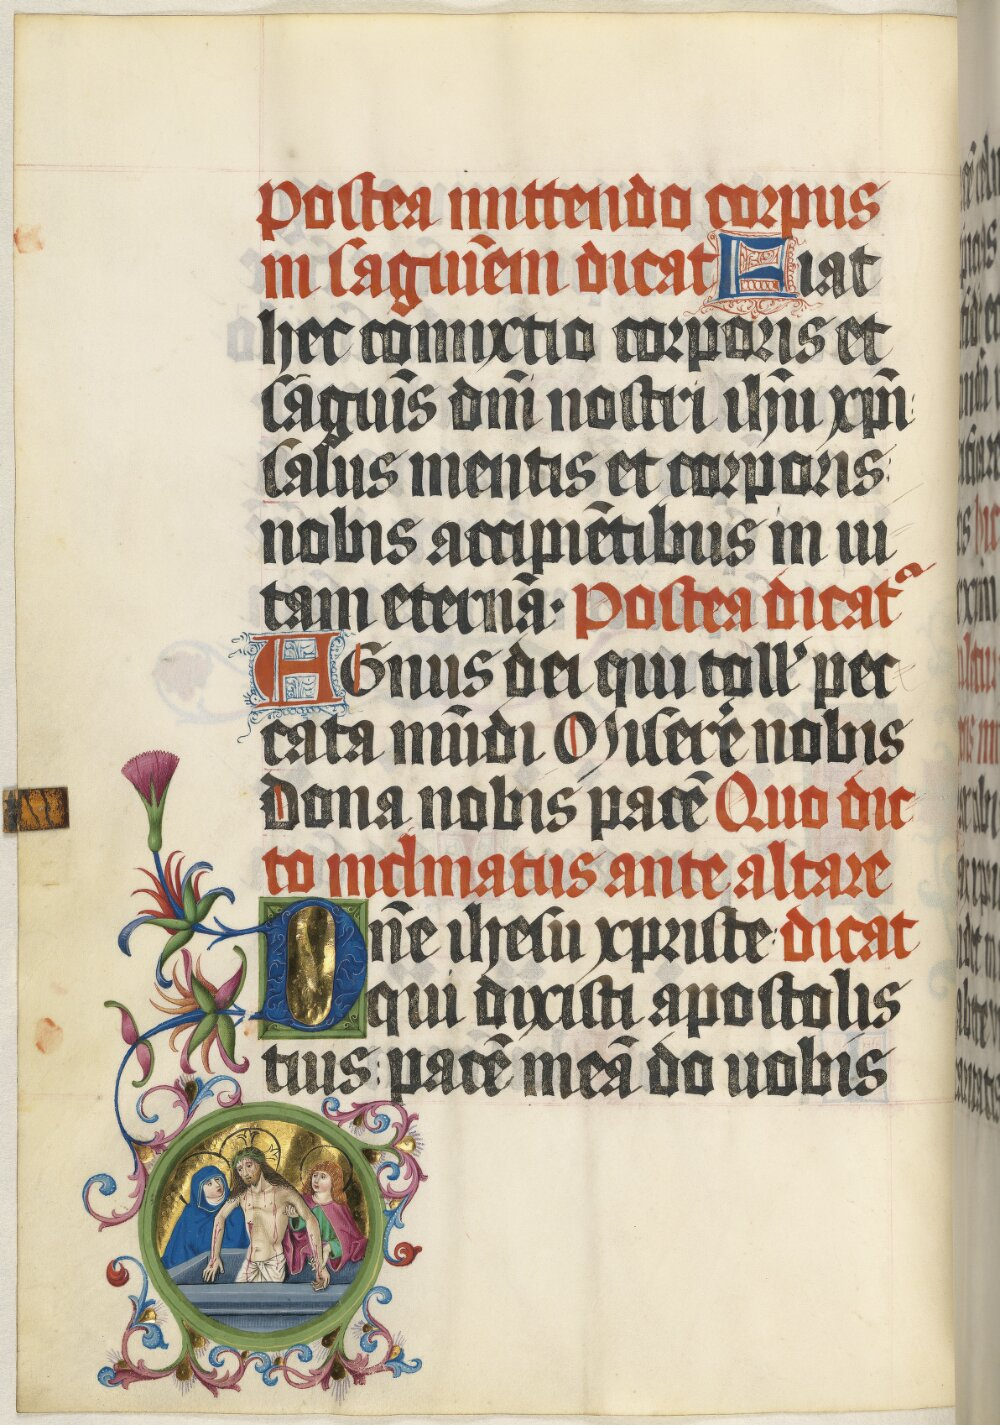 Postea mittendo corpus
in sagwinem dicat Fiat
hec comixtio corporis et
sāguīs dn̄i nostri ihū xpī:
salus mentis et corporis:
nobis accipiētibus in ui
tam eternā· Postea dicatᵃ
AGnus dei qui toll' pec
cata mūdi Miserē nobis
dona nobis pacē Quo dic
to inclinatus ante altare
Dn̄e ihesu xpriste: dicat
qui dixisti apostolis
tuis: pacē meā do uobis